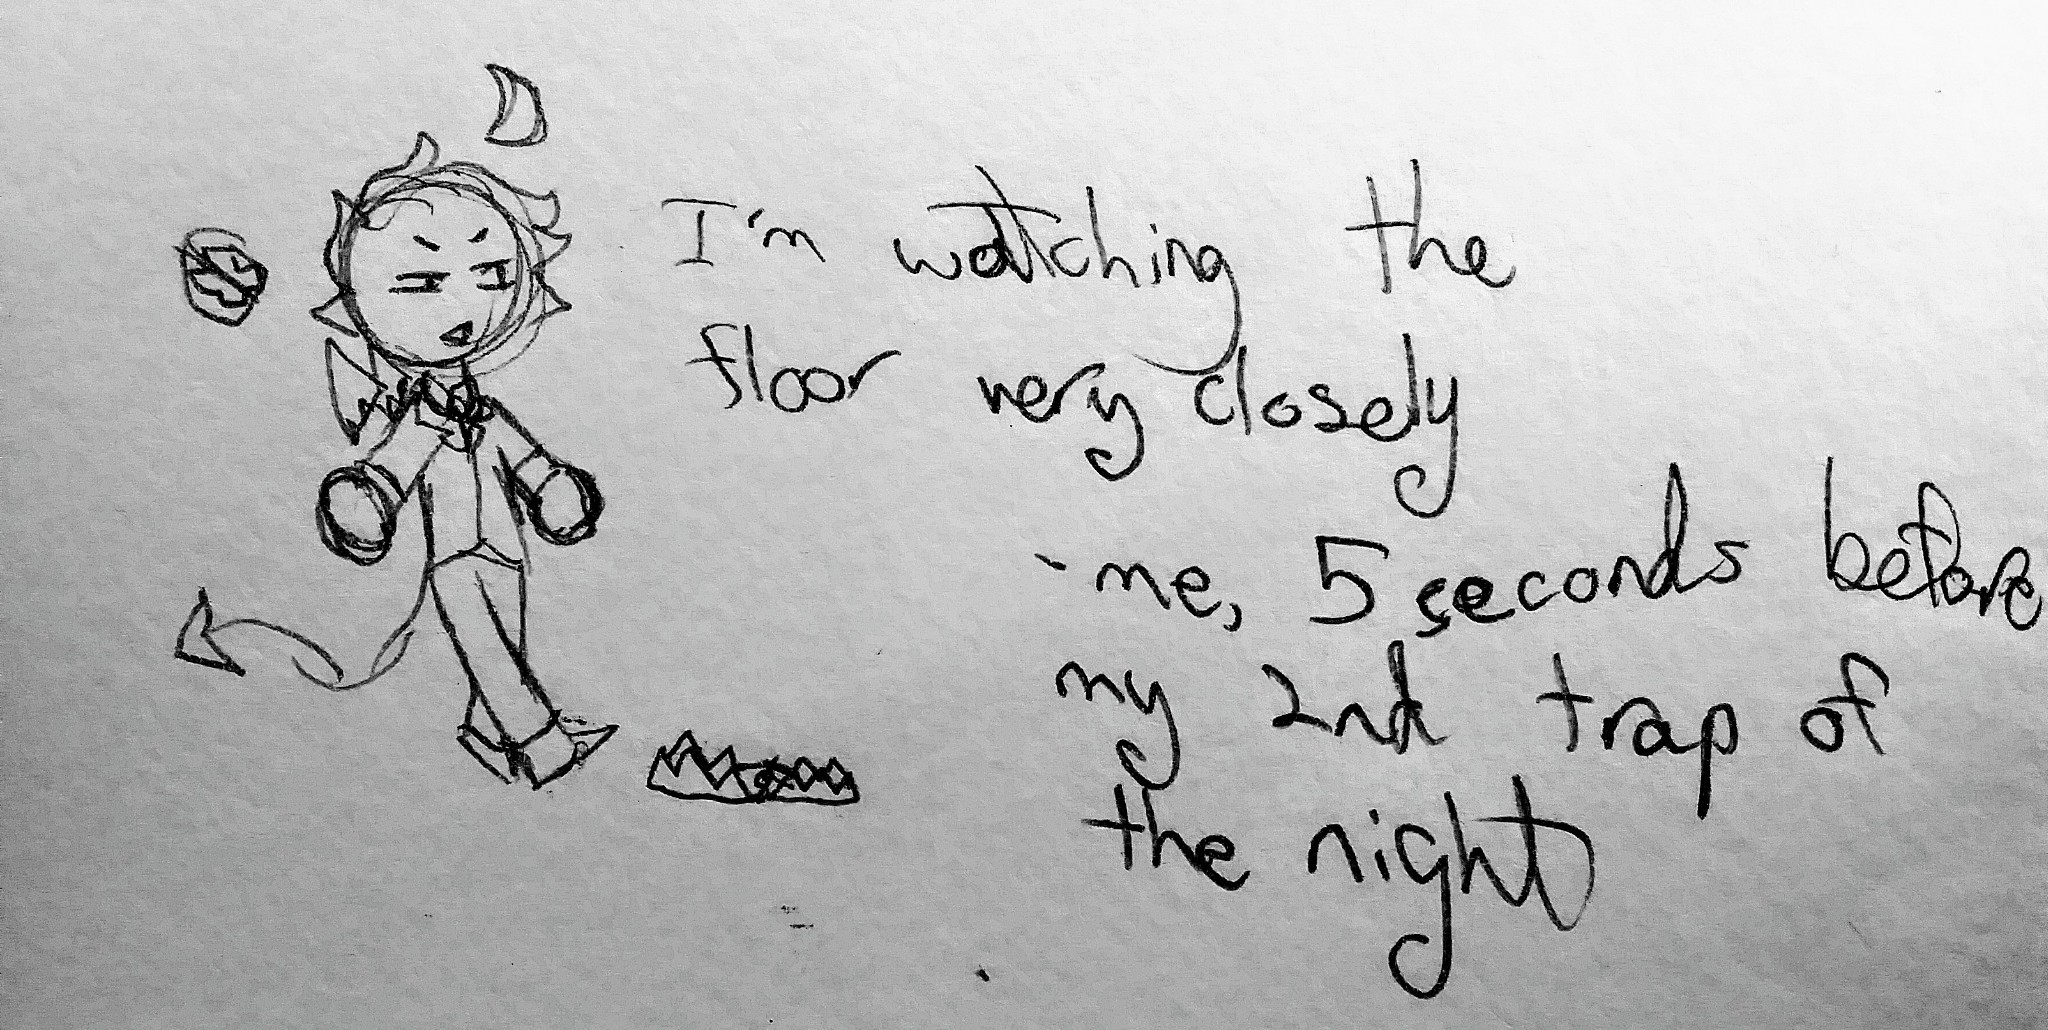 I'm watching the
floor very closely
- me, 5 seconds before
my 2nd trap of
the night